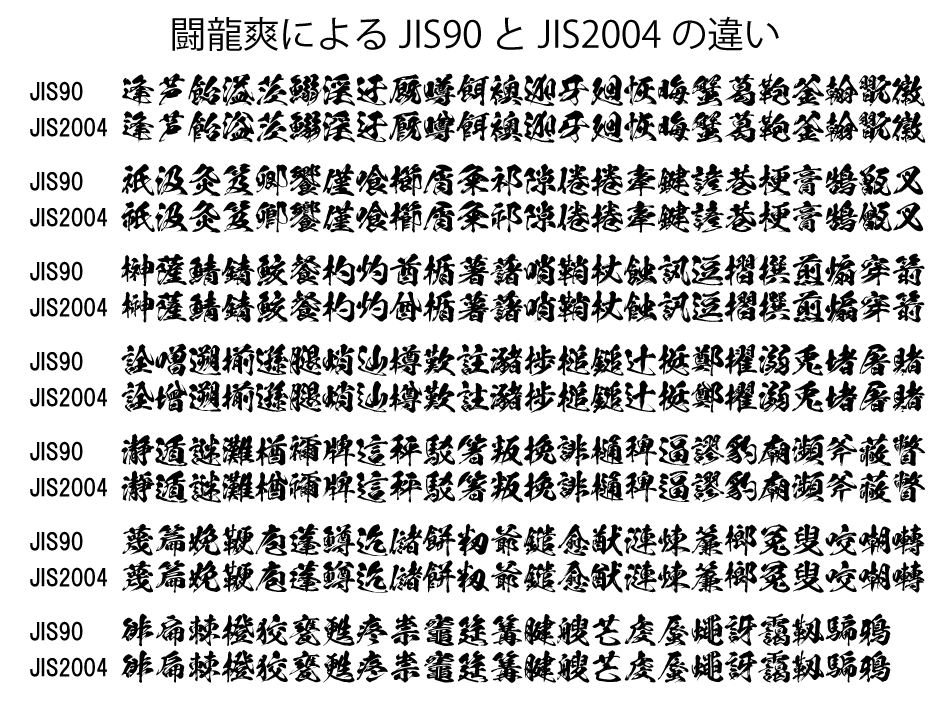 闘龍爽による JIS90 と JIS2004 の違い
JIS90 逢芦飴溢茨鰯淫迂厩噂餌襖迦牙廻恢晦蟹葛鞄釜翰翫徽
JIS2004 逢芦飴溢茨鰯淫迂厩噂餌襖迦牙廻恢晦蟹葛鞄釜翰翫徽
JIS90 祇汲灸笈卿饗僅喰櫛屑粂祁隙倦捲牽鍵諺巷梗膏鵠甑叉
JIS2004 祇汲灸笈卿饗僅喰櫛屑粂祁隙倦捲牽鍵諺巷梗膏鵠甑叉
JIS90 榊薩鯖錆鮫餐杓灼酋楯薯藷哨鞘杖蝕訊逗摺撰煎煽穿箭
JIS2004 榊薩鯖錆鮫餐杓灼酋楯薯藷哨鞘杖蝕訊逗摺撰煎煽穿箭
JIS90 詮噌遡揃遜腿蛸辿樽歎註瀦捗槌鎚辻挺鄭擢溺兎堵屠賭
JIS2004 詮噌遡揃遜腿蛸辿樽歎註瀦捗槌鎚辻挺鄭擢溺兎堵屠賭
JIS90 瀞遁謎灘楢禰牌這秤駁箸叛挽誹樋稗逼謬豹廟瀕斧蔽瞥
JIS2004 瀞遁謎灘楢禰牌這秤駁箸叛挽誹樋稗逼謬豹廟瀕斧蔽瞥
JIS90 蔑篇娩鞭庖蓬鱒迄儲餅籾爺鑓愈猷漣煉簾榔冤叟咬嘲囀
JIS2004 蔑篇娩鞭庖蓬鱒迄儲餅籾爺鑓愈猷漣煉簾榔冤叟咬嘲囀
JIS90 徘扁棘橙狡甕甦疼祟竈筵篝腱艘芒虔蜃蠅訝靄靱騙鴉
JIS2004 徘扁棘橙狡甕甦疼祟竈筵篝腱艘芒虔蜃蠅訝靄靱騙鴉